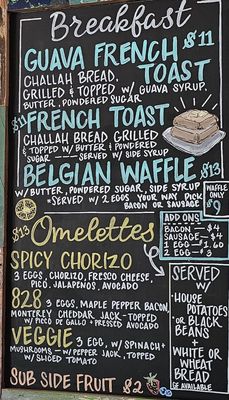 Breakfast
GUAVA FRENCH $11
TOAST
CHALLAH BREAD,
GRILLED & TOPPED W/ GUAVA SYRUP,
BUTTER, POWDERED SUGAR
FRENCH TOAST
CHALLAH BREAD GRILLED
& TOPPED W/ BUTTER & POWDERED
SUGAR SERVED W/ SIDE SYRUP
BELGIAN WAFFLE $13
W/ BUTTER, POWDERED SUGAR, SIDE SYRUP
*SERVED W/ 2 EGGS YOUR WAY PICK
BACON OR SAUSAGE
WAFFLE
ONLY
$9
$13 Omelettes
ADD ONS:
BACON — $4
SAUSAGE — $4
1 EGG — $1.60
2 EGG — $3
SPICY CHORIZO
3 EGGS, CHORIZO, FRESCO CHEESE,
PICO, JALAPENOS, AVOCADO
828 3 EGGS, MAPLE PEPPER BACON,
MONTEREY CHEDDAR JACK - TOPPED
W/ PICO DE GALLO + PRESSED AVOCADO
VEGGIE 3 EGG, W/ SPINACH +
MUSHROOMS — W/ PEPPER JACK, TOPPED
W/ SLICED TOMATO
SERVED
W/
HOUSE
POTATOES
OR BLACK
BEANS
+
WHITE OR
WHEAT
BREAD
GF AVAILABLE
SUB SIDE FRUIT $2